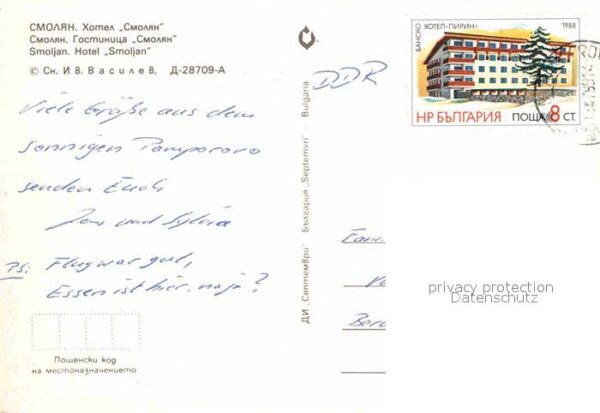 СМОЛЯН. Хотел „Смолян"
Смолян. Гостиница „Смолян"
Smoljan. Hotel „Smoljan"
© Сн. Ив. Василев, Д-28709-А
DDR
Viele Grüße aus dem
sonnigen Pamporovo
senden Euch
und Sylvia
PS: Flug war gut,
Essen ist hier, naja?
Пощенски код
на местоназначението
ДИ „Септември" България „Septemvri" - Bulgaria
БАНСКО ХОТЕЛ „ПИРИН" 1988
НР БЪЛГАРИЯ ПОЩА 8 СТ.
Fam.
Ber
privacy protection
Datenschutz